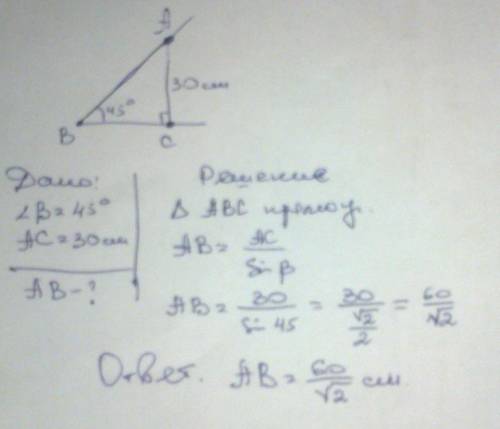 A
30 см
45°
B
C
Дано:
∠B = 45°
AC = 30 см
AB - ?
Решение
Δ ABC прямоуг.
AB = AC / sin β
AB = 30 / sin 45 = 30 / (√2 / 2) = 60 / √2
Ответ. AB = 60 / √2 см